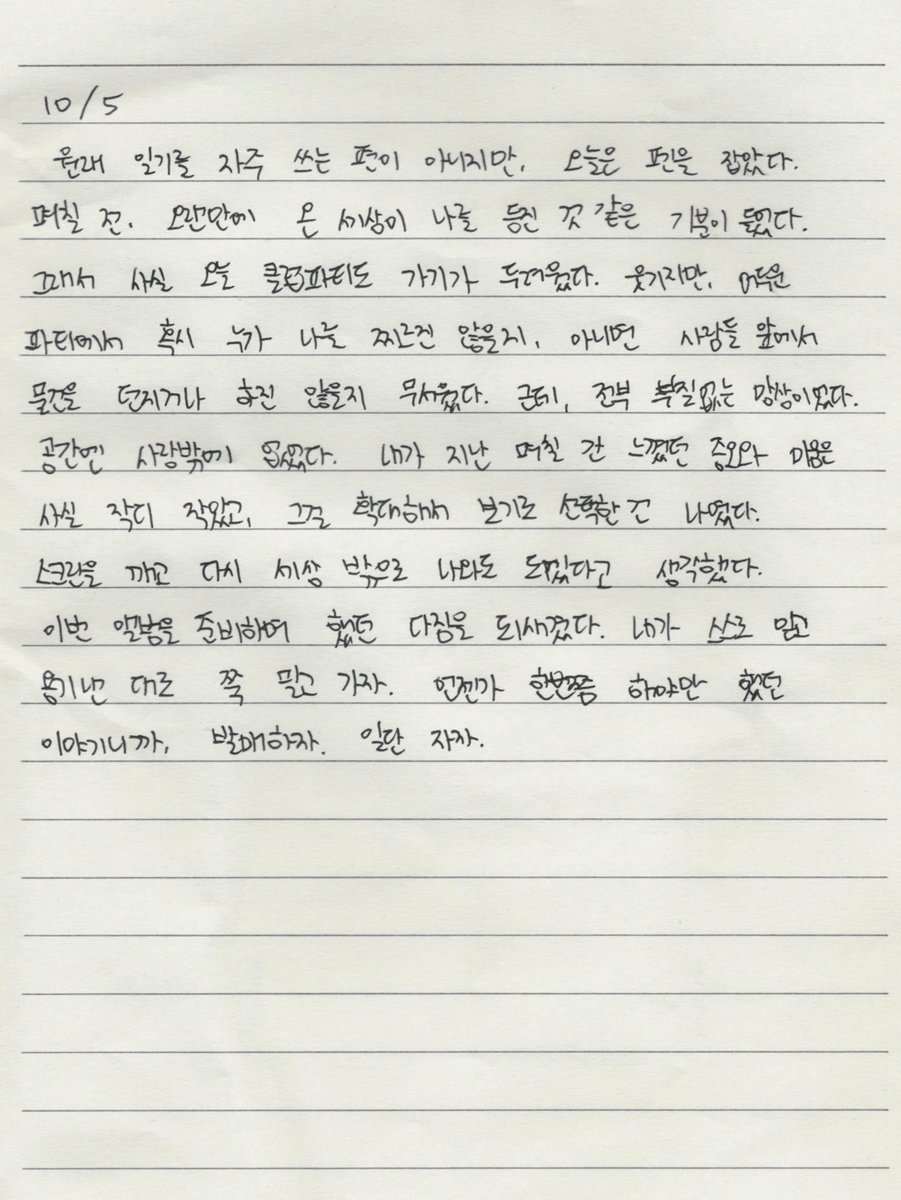 10/5
원래 일기를 자주 쓰는 편이 아니지만, 오늘은 펜을 잡았다.
며칠 전, 오랜만에 온 세상이 나를 등진 것 같은 기분이 들었다.
그래서 사실 오늘 클럽파티도 가기가 두려웠다. 웃기지만, 어두운
파티에서 혹시 누가 나를 찌르진 않을지, 아니면 사람들 앞에서
물건을 던지거나 하진 않을지 무서웠다. 근데, 전부 부질없는 망상이었다.
공간엔 사랑밖에 없었다. 내가 지난 며칠 간 느꼈던 증오와 미움은
사실 작디 작았고, 그걸 확대해서 보기로 선택한 건 나였다.
스크린을 깨고 다시 세상 밖으로 나와도 되겠다고 생각했다.
이번 앨범을 준비하며 했던 다짐을 되새겼다. 내가 스스로 믿고
용기낸 대로 쭉 밀고 가자. 언젠가 한번쯤 해야만 했던
이야기니까, 발매하자. 일단 자자.